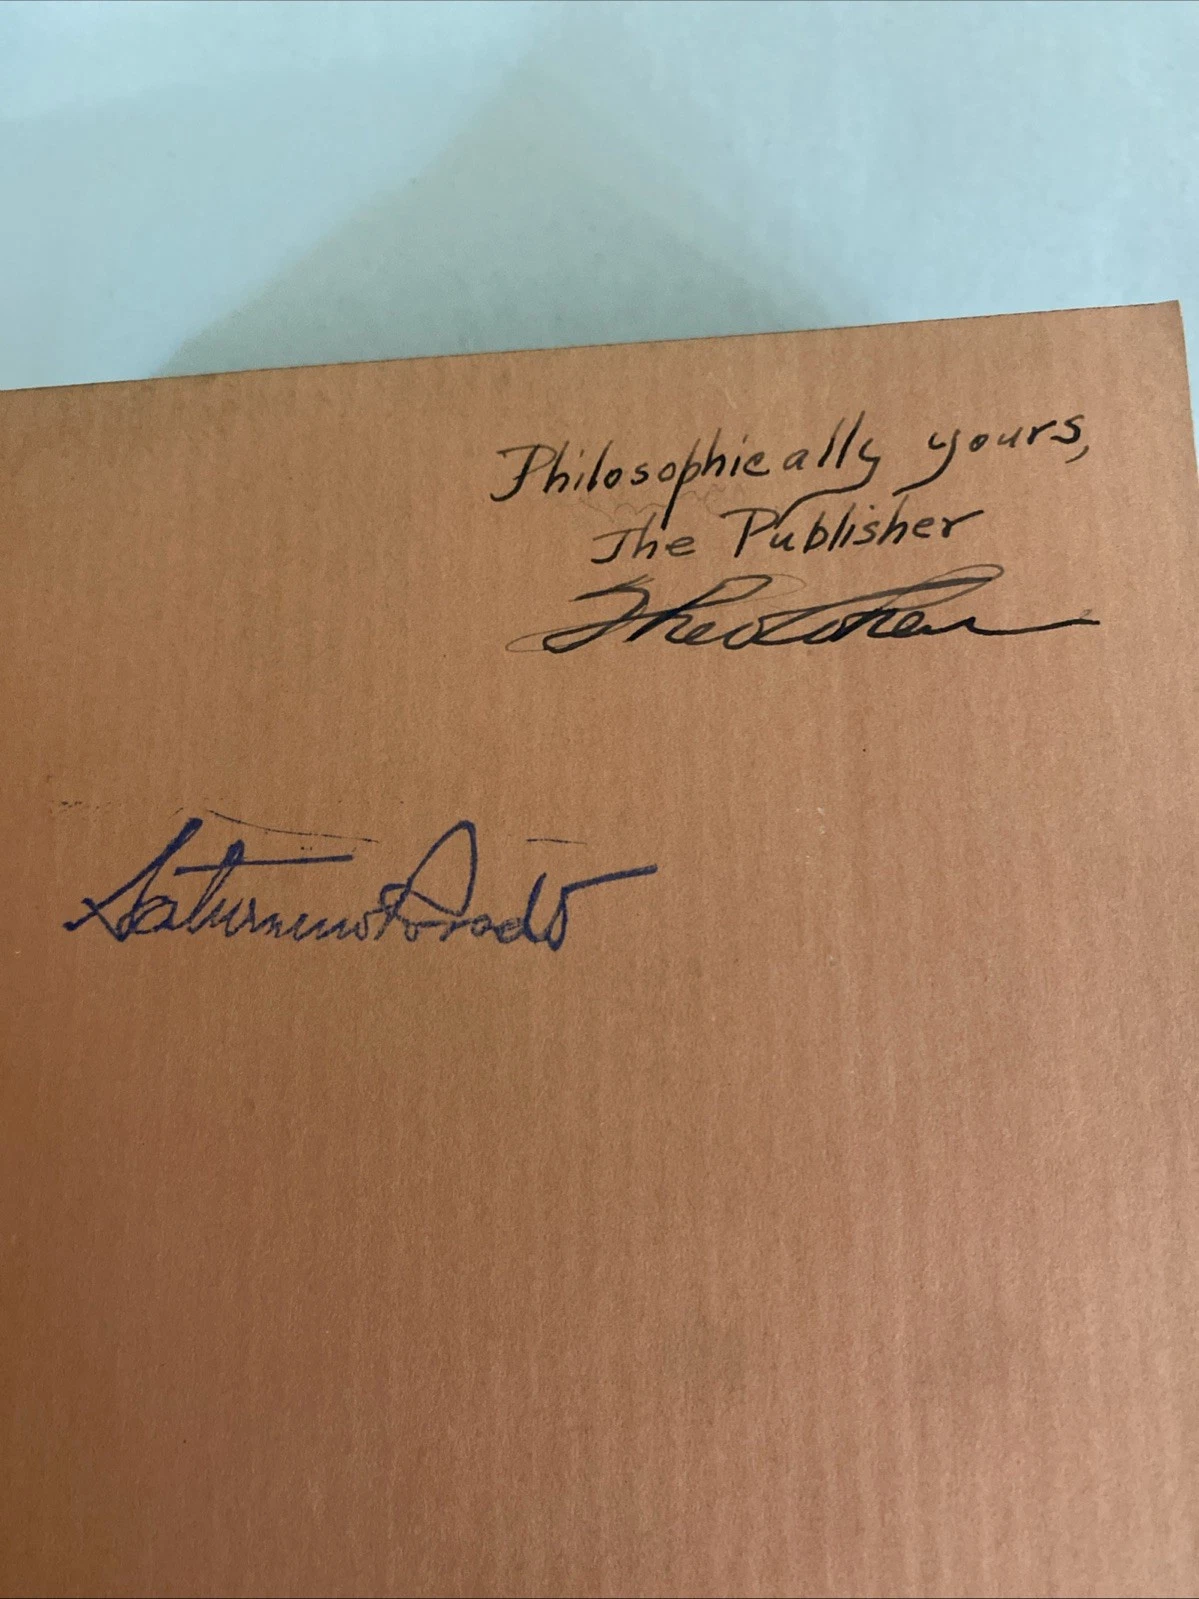 Philosophically yours,
The Publisher
Theo Cohen
Saturnino Prado